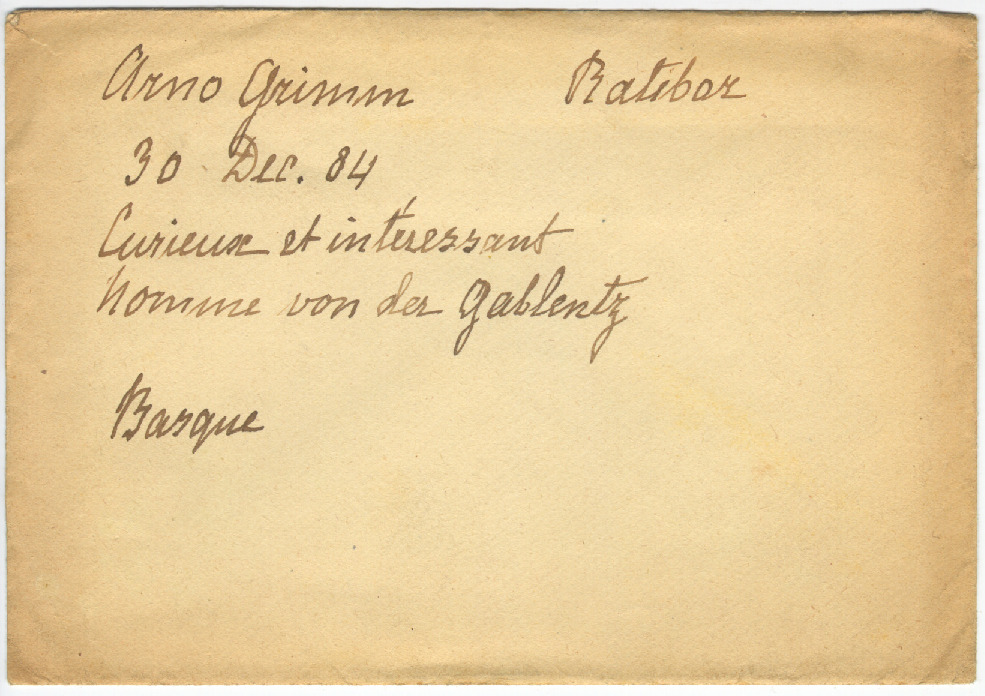 Arno Grimm Ratibor
30 Dec. 84
Curieux et intéressant
homme von der Gablentz
Basque